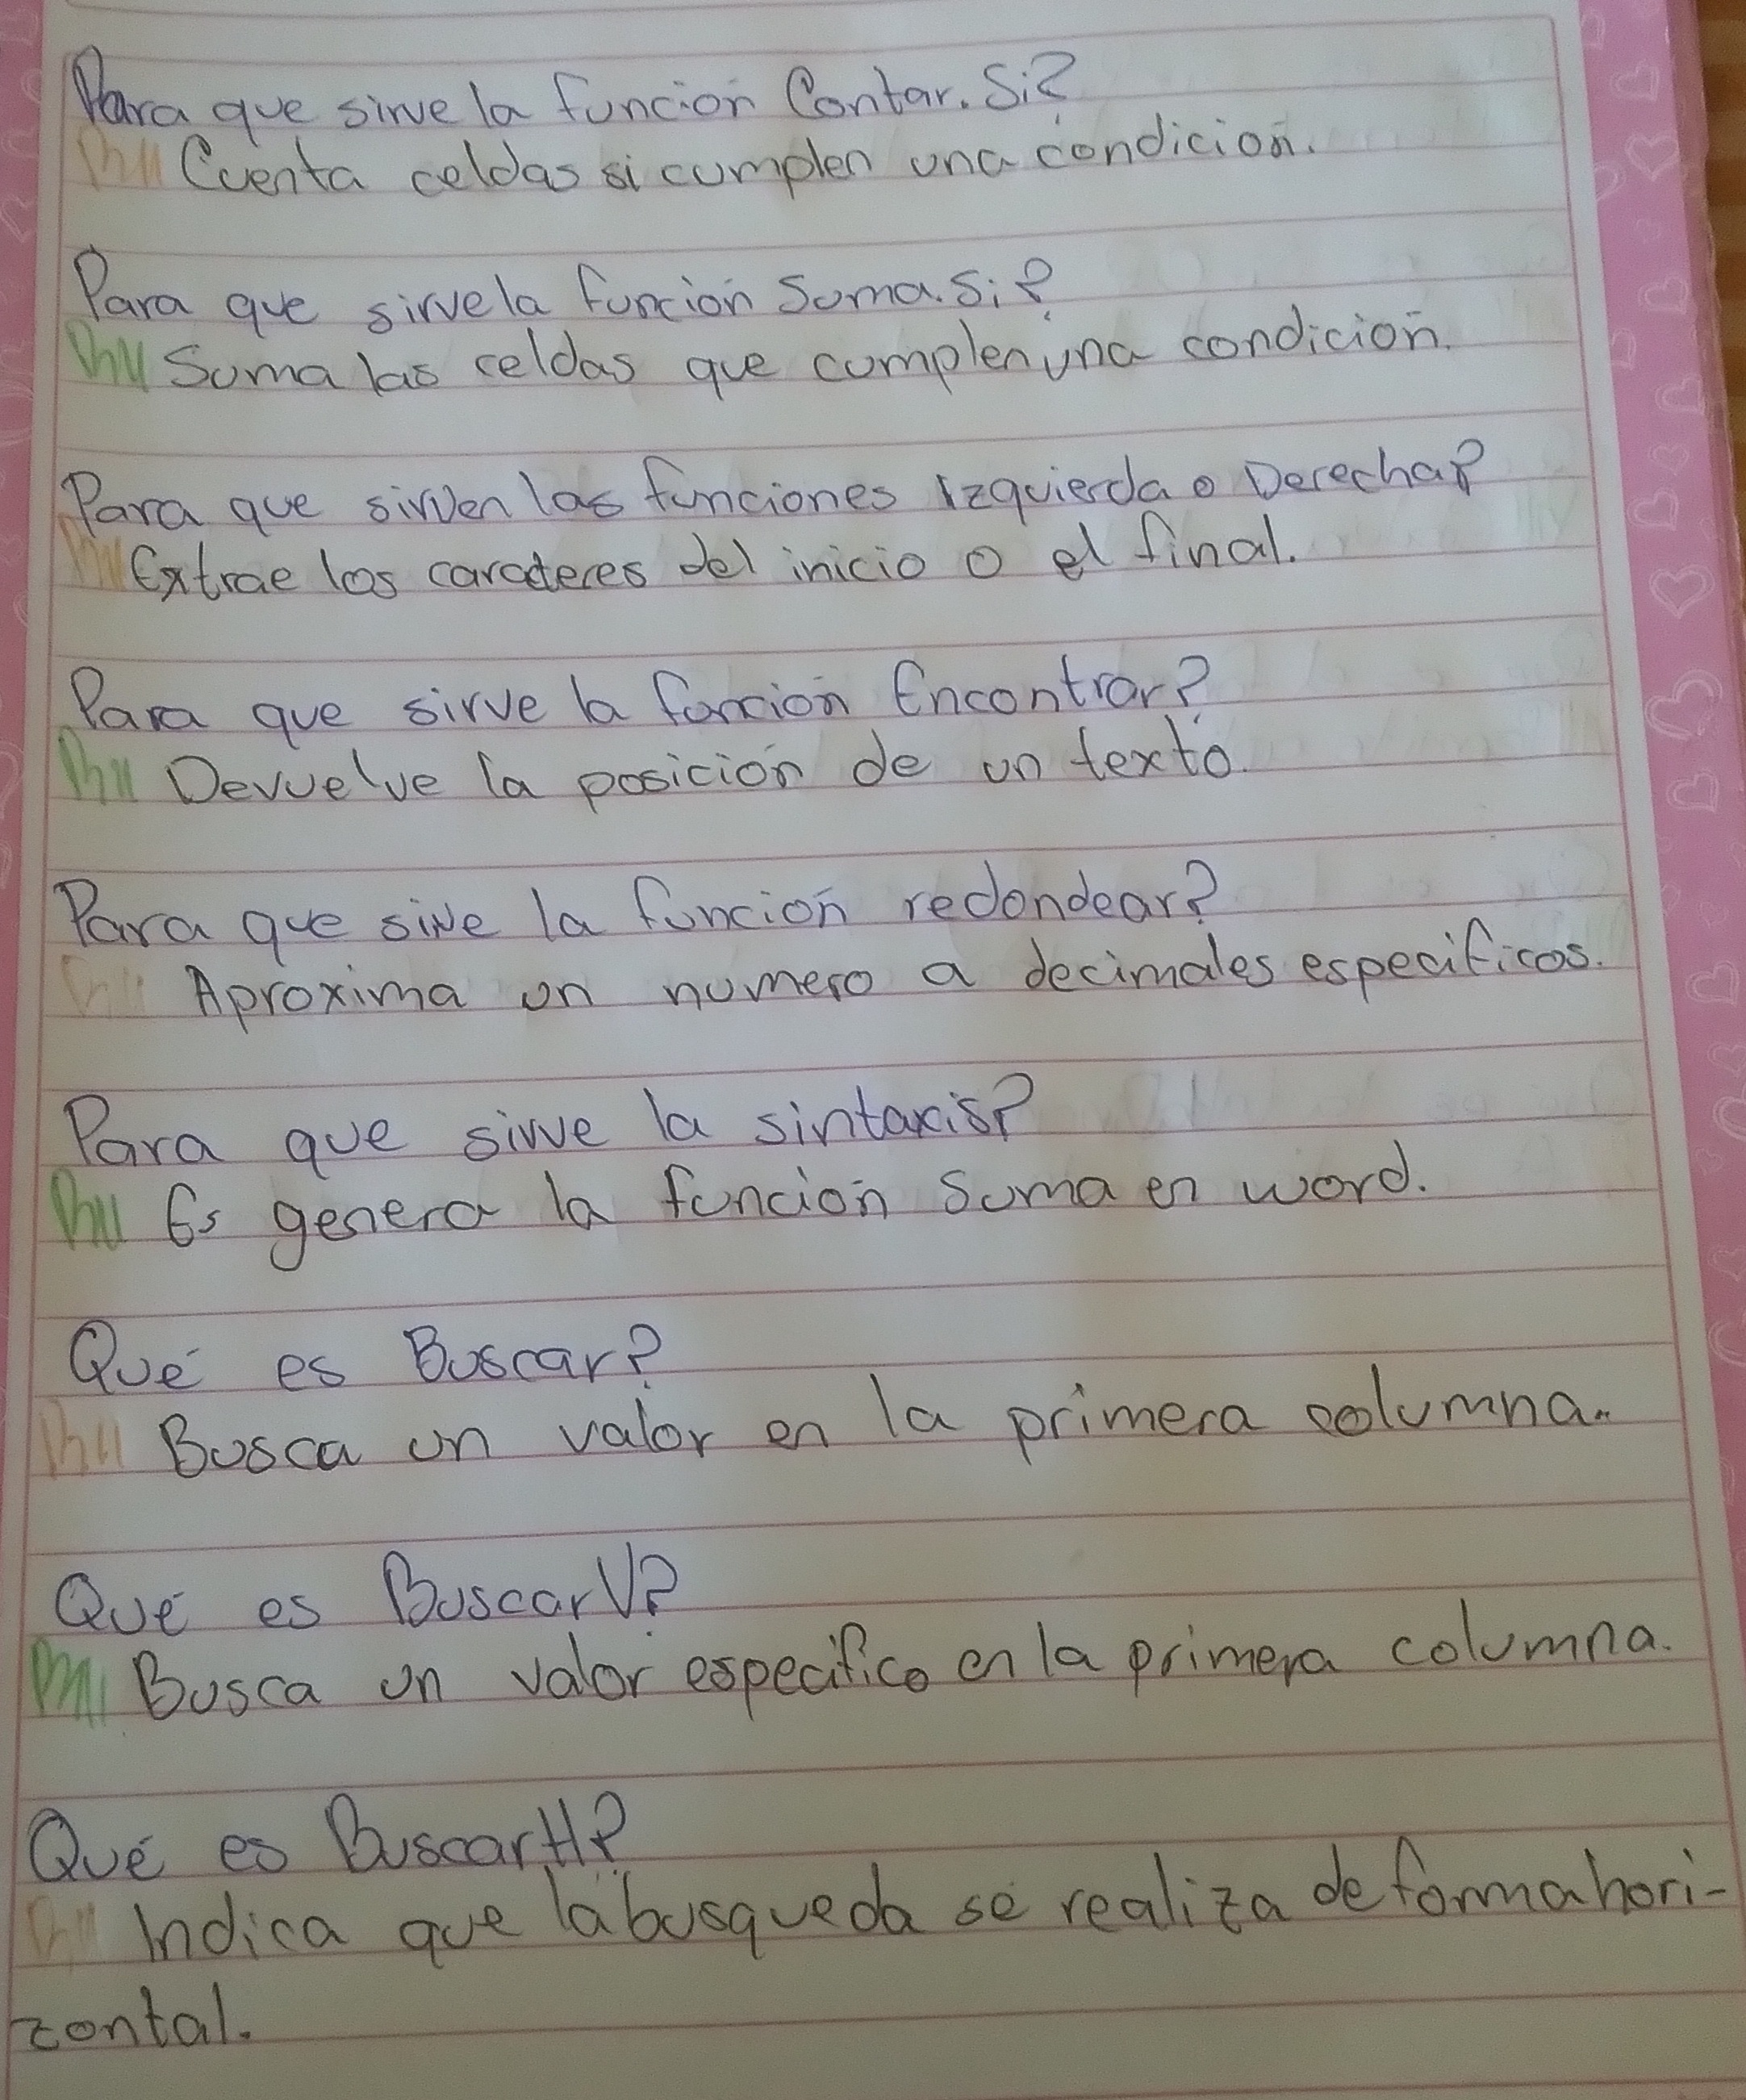 Para que sirve la función Contar. Si?
R// Cuenta celdas si cumplen una condición.
Para que sirve la función Suma. Si?
R// Suma las celdas que cumplen una condición.
Para que sirven las funciones Izquierda o Derecha?
R// Extrae los caracteres del inicio o el final.
Para que sirve la función Encontrar?
R// Devuelve la posición de un texto.
Para que sirve la función redondear?
R// Aproxima un numero a decimales especificos.
Para que sirve la sintaxis?
R// Es genera la función Suma en word.
Qué es Buscar?
R// Busca un valor en la primera columna..
Qué es BuscarV?
R// Busca un valor especifico en la primera columna.
Qué es BuscarH?
R// Indica que la busqueda se realiza de forma hori-
zontal.